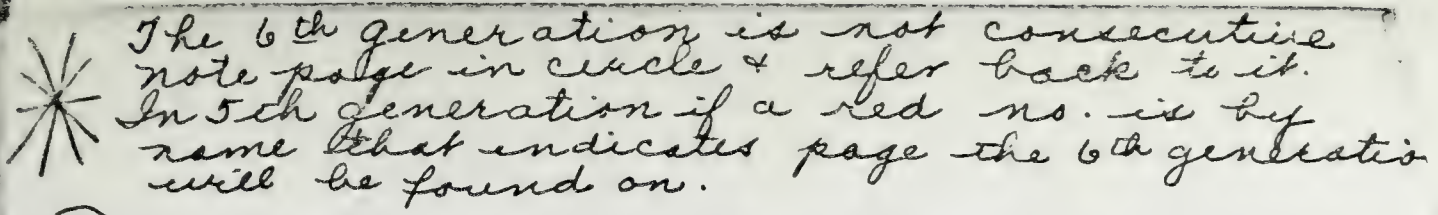 The 6th generation is not consecutive
note page in circle & refer back to it.
In 5th generation if a red no. is by
name that indicates page the 6th generatio
will be found on.